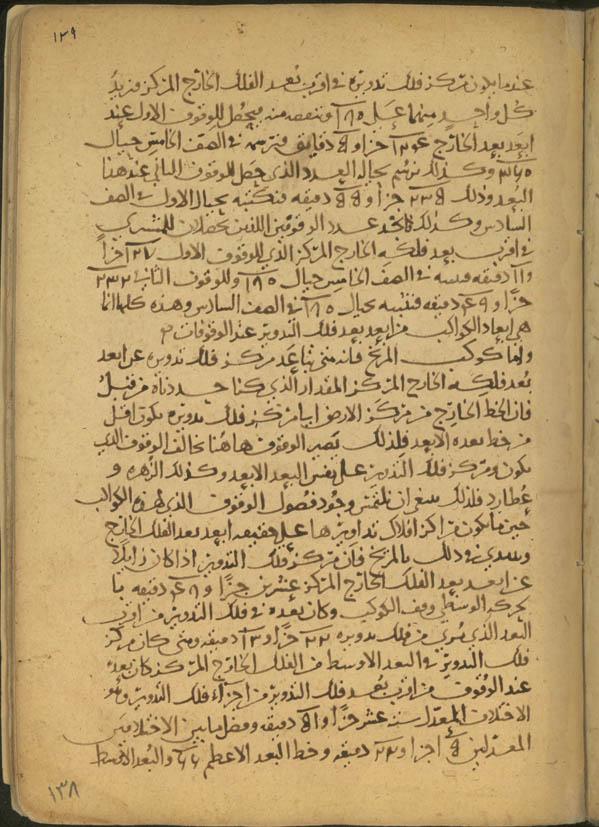 ١٣٩
عندما يكون مركز فلك تدويره في اقرب بعد الفلك الخارج المركز فنزيد
كل واحد منهما على وننقصه منه فيحصل للوقوف الاول عند
ابعد بعد الخارج جزا و دقايق فنرسمه في الصف الخامس حيال
وكذلك نرسم بحياله العدد الذي حصل للوقوف الثاني عند هذا
البعد وذلك جزأ و دقيقه فنكتبه بحيال الاول في الصف
السادس وكذلك فانخذ عدد الوقوفين اللذين يحصلان للمشتري
في اقرب بعد فلكه الخارج المركز الذي للوقوف الاول جزأ
و١١ دقيقه فنثبته في الصف الخامس حيال وللوقوف الثاني ٢٣٢
جزا و دقيقه فنثبته بحيال في الصف السادس وهذه كلها انما
هي ابعاد الكواكب من ابعد بعد فلك التدوير عند الوقوفات
واما كوكب المريخ فانه متى تباعد مركز فلك تدويره عن ابعد
بعد فلكه الخارج المركز المقدار الذي كنا حددناه من قبل
فان الخط الخارج من مركز الارض الى مركز فلك تدويره يكون اقل
من خط بعده الابعد فلذلك يصير الوقوف هاهنا يخالف الوقوف الذي
يكون ومركز فلك التدوير على نفس البعد الابعد وكذلك الزهره و
عطارد فلذلك ينبغي ان نلتمس وجود فصول الوقوف الذي لهذه الكواكب
حين ما يكون مراكز افلاك تداويرها على حقيقه ابعد بعد الفلك الخارج
ونبتدي في ذلك بالمريخ فان مركز فلك التدوير اذا كان زايلا
عن ابعد بعد الفلك الخارج المركز عشرين جزا و دقيقه با
لحركه الوسطى وقف الكوكب وكان بعده في فلك التدوير من اقرب
البعد الذي يرى من فلك تدويره ٢٢ جزا و١٣ دقيقه ومتى كان مركز
فلك التدوير في البعد الاوسط من الفلك الخارج المركز كان بعده
عند الوقوف من اقرب بعد فلك التدوير من اجزاء فلك التدوير وهو
الاختلاف المعدل سته عشر جزا و دقيقه وفضل ما بين الاختلافين
المعدلين اجزا و٢٢ دقيقه وخط البعد الاعظم والبعد الاوسط
١٣٨